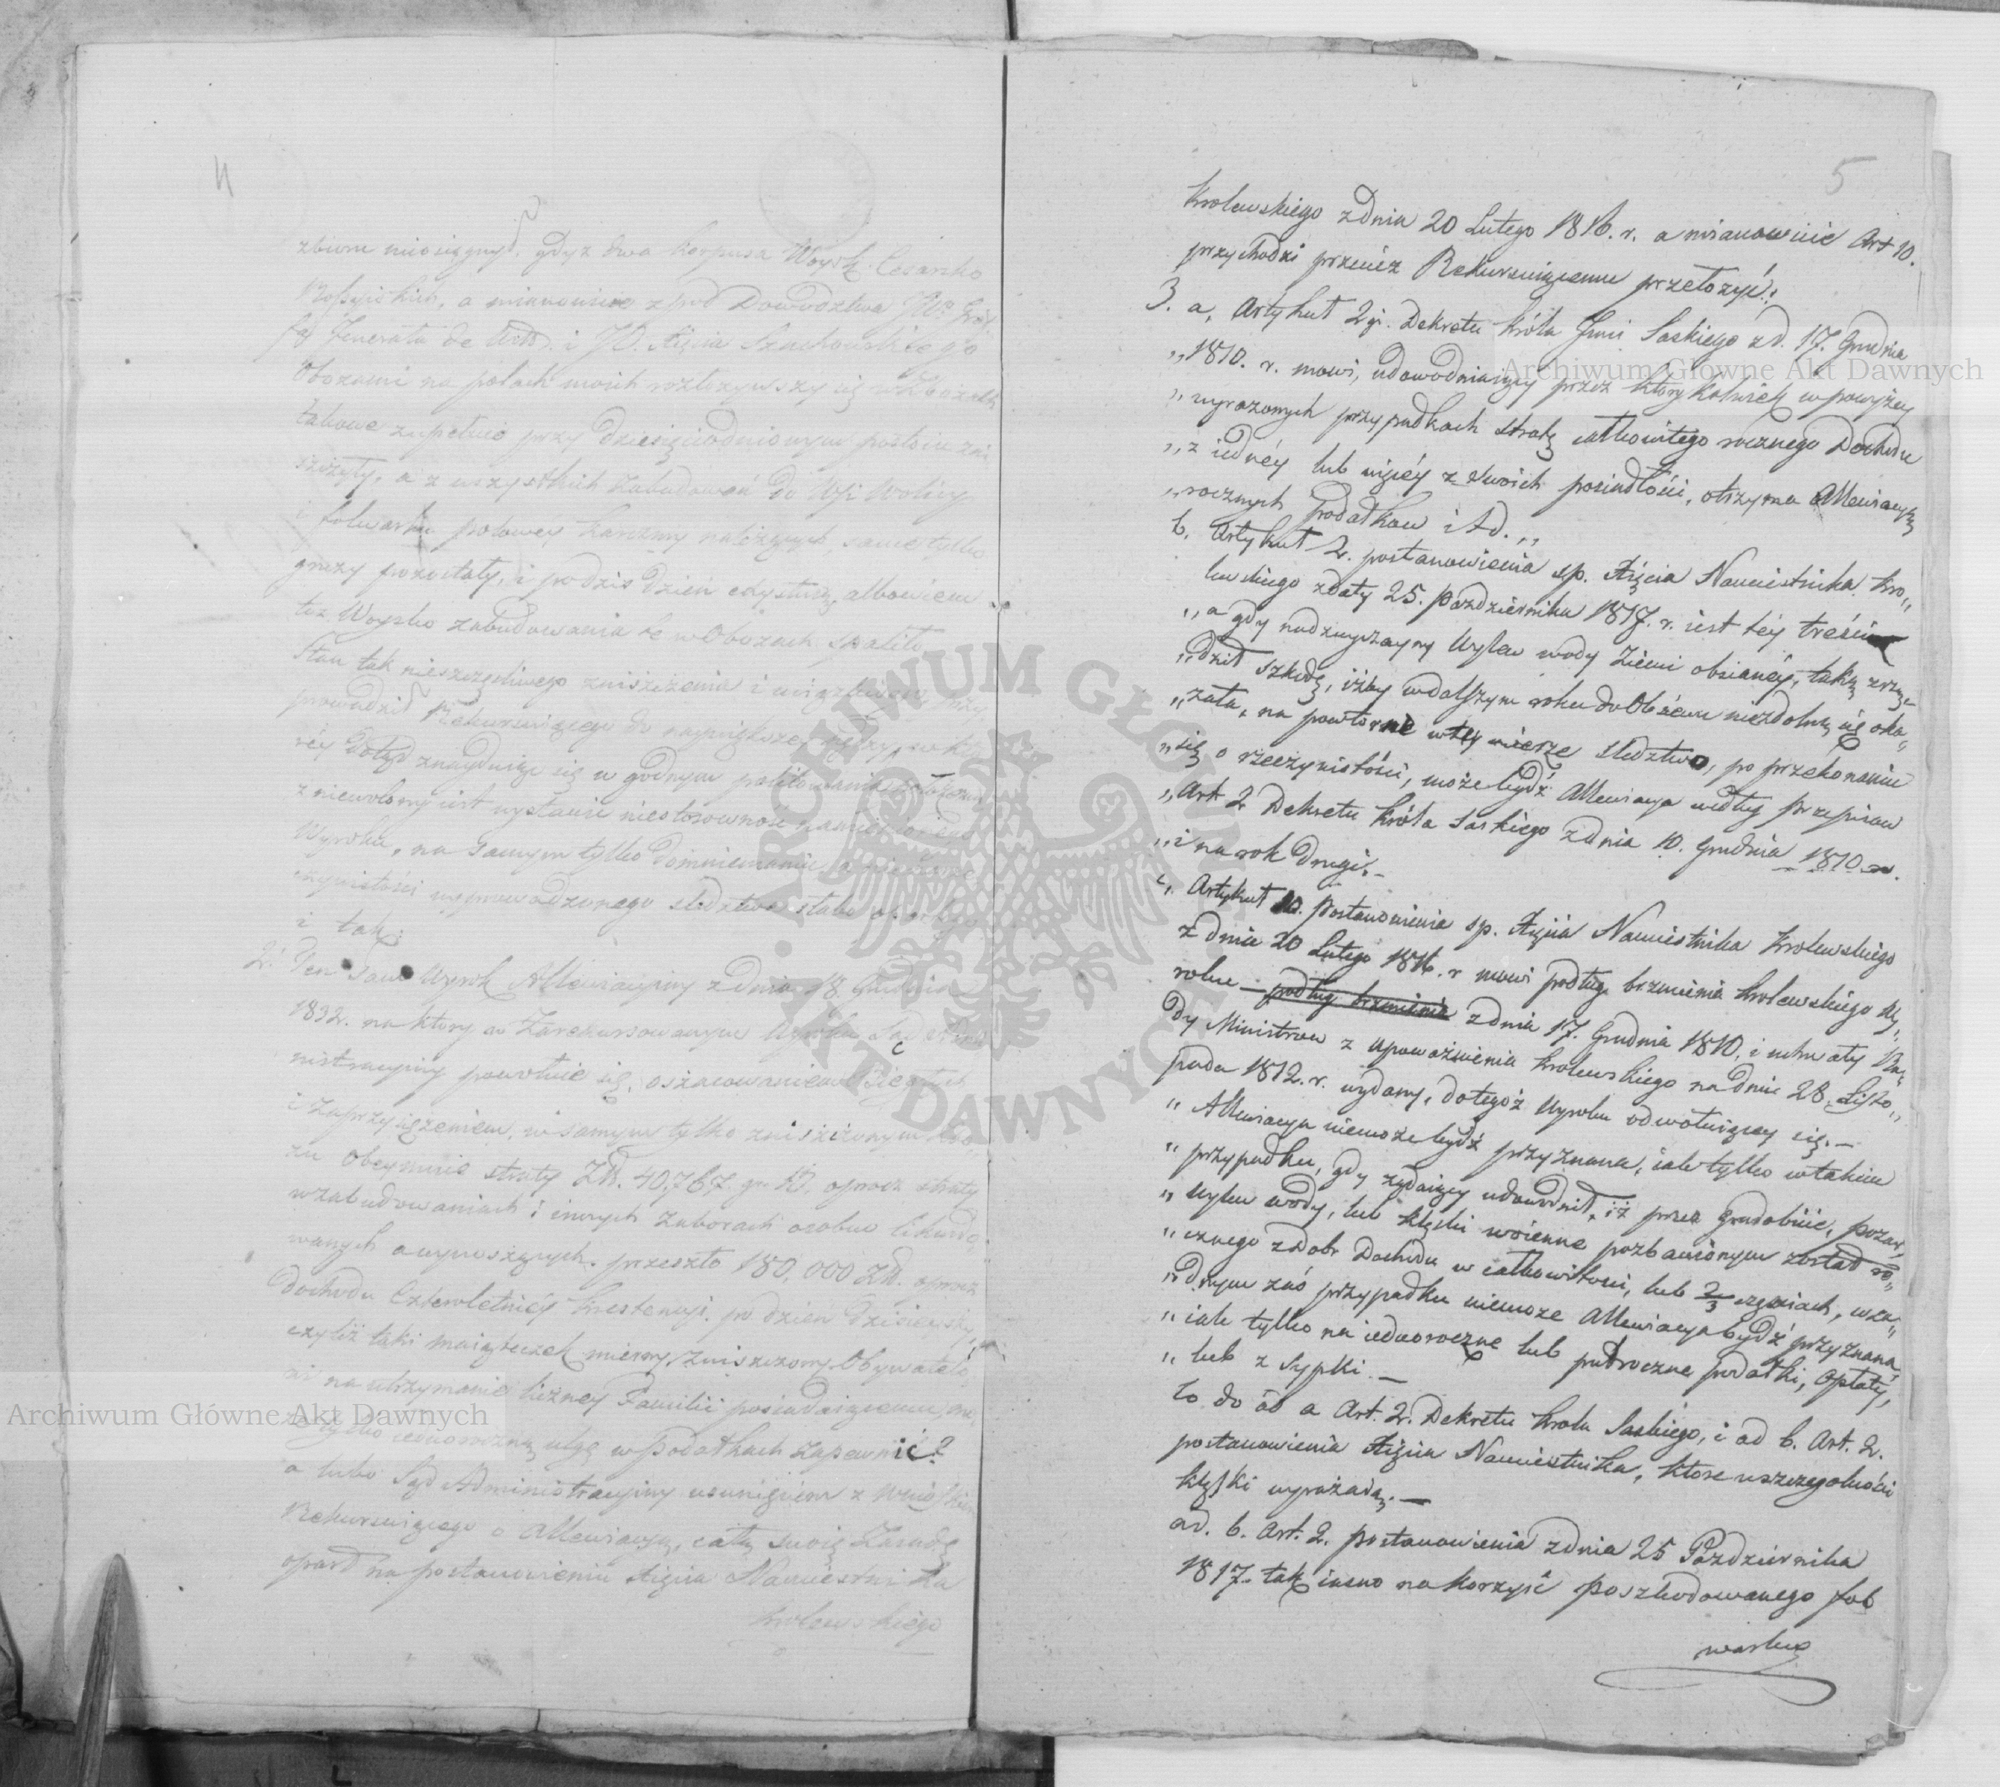 4
zbioru miesięcznego, gdyż dwa korpusa Woysk Cesarsko
Rossyiskich, a mianowicie z pod Dowództwa
Jenerała de Witt. i JO. Xięcia Szachowskiego
Obozami na polach moich rozłożywszy się w Zbożach
takowe zupełnie przy dziesięciodniowym postoiu zni
szczyły, a z wszystkich zabudowań do Wsi Wolicy
i folwarku połowey karczmy należących same tylko
gruzy pozostały, i po dziś dzień exystują, albowiem
też Woysko zabudowania te w Obozach spaliło
Stan tak nieszczęśliwego zniszczenia i
prowadził Rekurruiącego do naywiększey nędzy, w któ
rey dotąd znayduiąc się w godnym politowania położeniu
zniewolony iest wystawić niestosowność
Wyroku, na samym tylko domniemaniu
czywistości wyprowadzonego śledztwa słabo
i tak:
2. Ten sam Wyrok Allewiacyiny z dnia 18. Grudnia
1832. na który w Zarekursowanym Wyroku Sąd Admi
nistracyiny powołuie się, oszacowaniem Biegłych
i zaprzysiężeniem, w samym tylko zniszczonym Zbo
żu obeymuie straty Złł. 40,767. gr. 10. oprócz straty
w zabudowaniach i innych zaborach osobno likwido
wanych a wynoszących przeszło 180,000 Złł. oprócz
dochodu czteroletniey po dzień dzisieyszy,
czyliż taki maiąteczek mierny zniszczony Obywatelo
wi na utrzymanie liczney Familii posiadaiącemu, mo
że tylko iednoroczną ulgę w Podatkach zapewnić?
a lubo Sąd Administracyiny usunięciem z wniosków
Rekurruiącego o Allewiacyą, całą swoię Zasadę
oparł na postanowieniu Xięcia Namiestnika
Królewskiego
5
Krolewskiego z dnia 20 Lutego 1816. r. a mianowicie Art 10.
przychodzi przecież Rekurruiącemu przełożyć:
3. a, Artykuł 2gi. Dekretu Króla Jmci Saskiego z d. 17. Grudnia
„1810. r. mowi, udowodniaiący przez którykolwiek w powyżey
„wyrażonych przypadkach stratę całkowitego rocznego Dochodu
„z iedney lub więcey z swoich posiadłości, otrzyma Allewiacyą
„rocznych podatkow i t d.„
b. Artykuł 2. postanowienia sp. Xięcia Namiestnika Kro„
lewskiego z daty 25. Października 1817. r. iest tey treści
„a gdy nadzwyczayny Wylew wody ziemi obsianey, taką zrzą„
„dził szkodę, iżby w dalszym roku do Obsiewu niezdolną się oka„
„zała, na powtorne w tey mierze sledztwo, po przekonaniu
„się o rzeczywistości, może bydź Allewiacya według przepisow
„Art 2 Dekretu Króla Saskiego z dnia 10. Grudnia 1810 r.
„i na rok drugi. –
c, Artykuł 10. Postanowienia sp. Xięcia Namiestnika Krolewskiego
z dnia 20 Lutego 1816. r mowi podług brzmienia Krolewskiego Wy„
roku – podług brzmienia z dnia 17. Grudnia 1810, i uchwały Ra„
dy Ministrow z upoważnienia Krolewskiego na dniu 28. Listo„
pada 1812. r. wydany, do tegoż Wyroku odwołuiący się. –
„Allewiacya niemoże bydź przyznana, iak tylko w takim
„przypadku, gdy żądaiący udowodnił, iż przez Gradobicie, pożar,
„Wylew wody, lub klęski woienne pozbawionym został ro„
„cznego z Dobr Dochodu w całkowitości, lub 2/3 częściach, w ża„
„dnym zaś przypadku niemoże Allewiacya bydź przyznaną
„iak tylko na iednoroczne lub półroczne podatki, Opłaty,
„lub z Sypki. –
to do ad a Art. 2. Dekretu Krola Saskiego, i ad b. Art. 2.
postanowienia Xięcia Namiestnika, ktore w szczegolności
klęski wyrażaią. –
ad. b. Art. 2. postanowienia z dnia 25 Października
1817. tak iasno na korzyść poszkodowanego fol
warku
ARCHIWUM GŁÓWNE AKT DAWNYCH
Archiwum Główne Akt Dawnych
Archiwum Główne Akt Dawnych